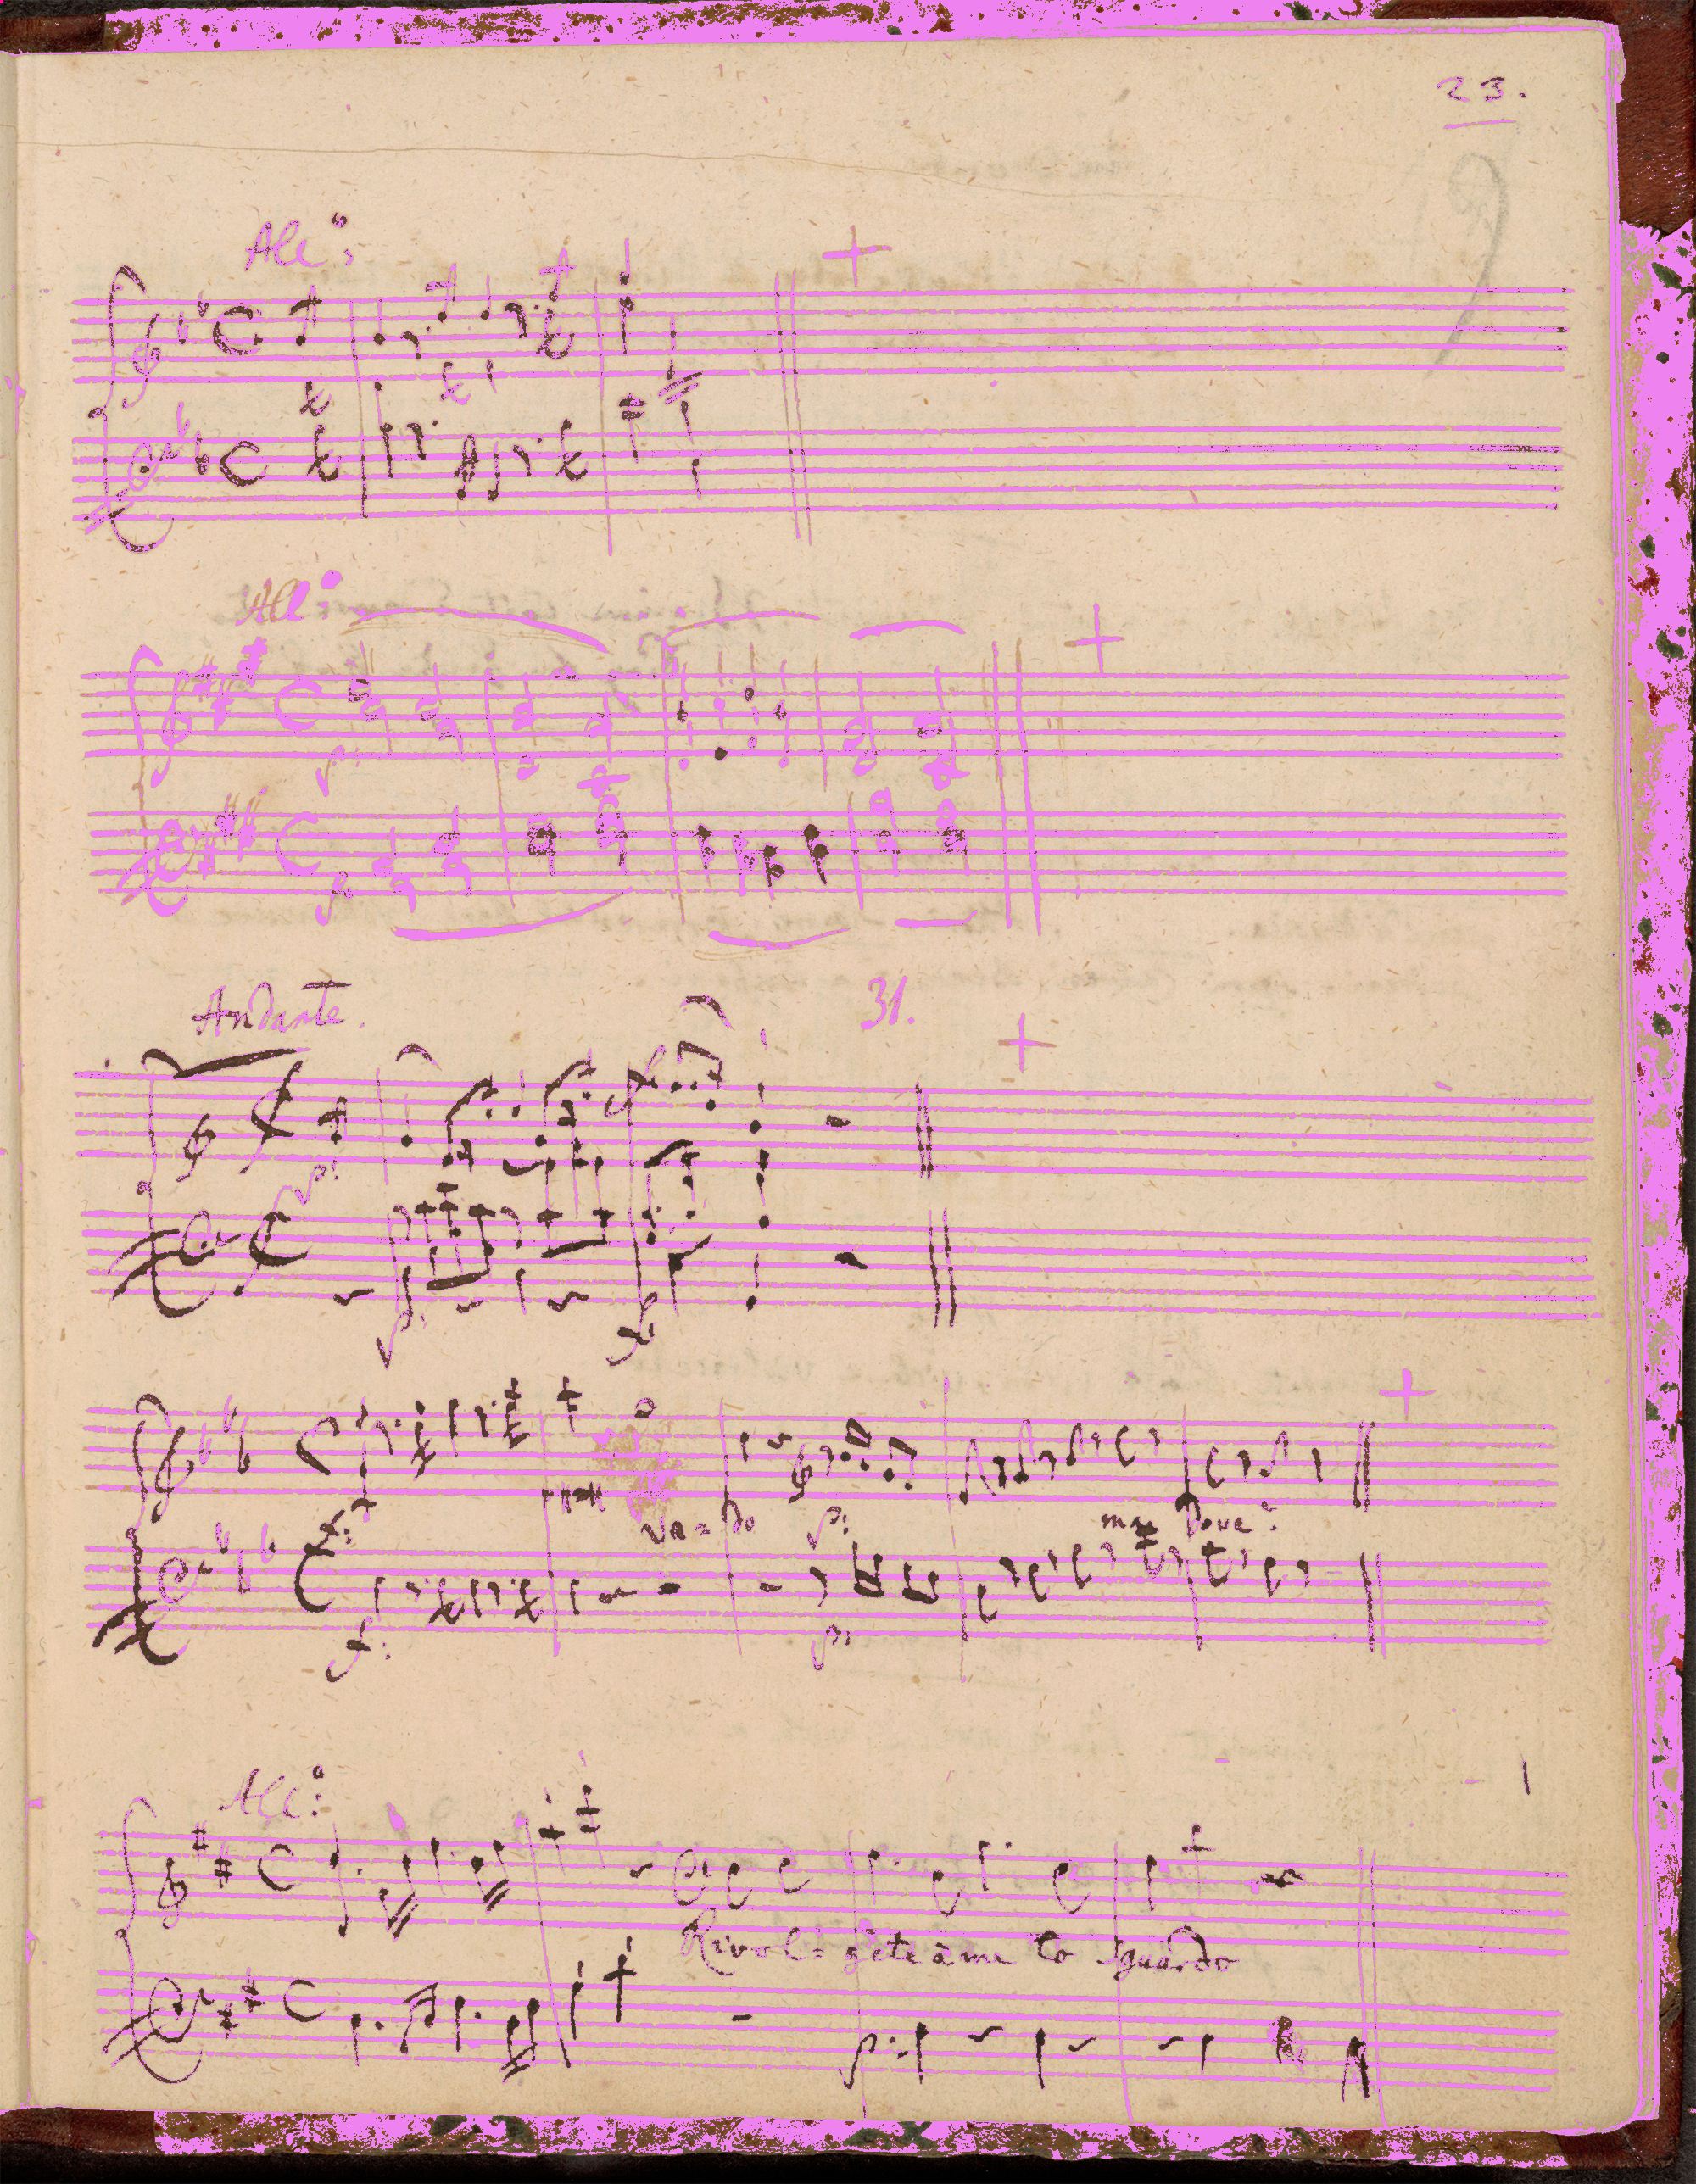 23.
All:º
All:º
Andante.
31.
p:
p:
f:
Va=do
p:
ma Dove?
f:
p:
All:º
Rivol=gete à me lo sguardo
p: